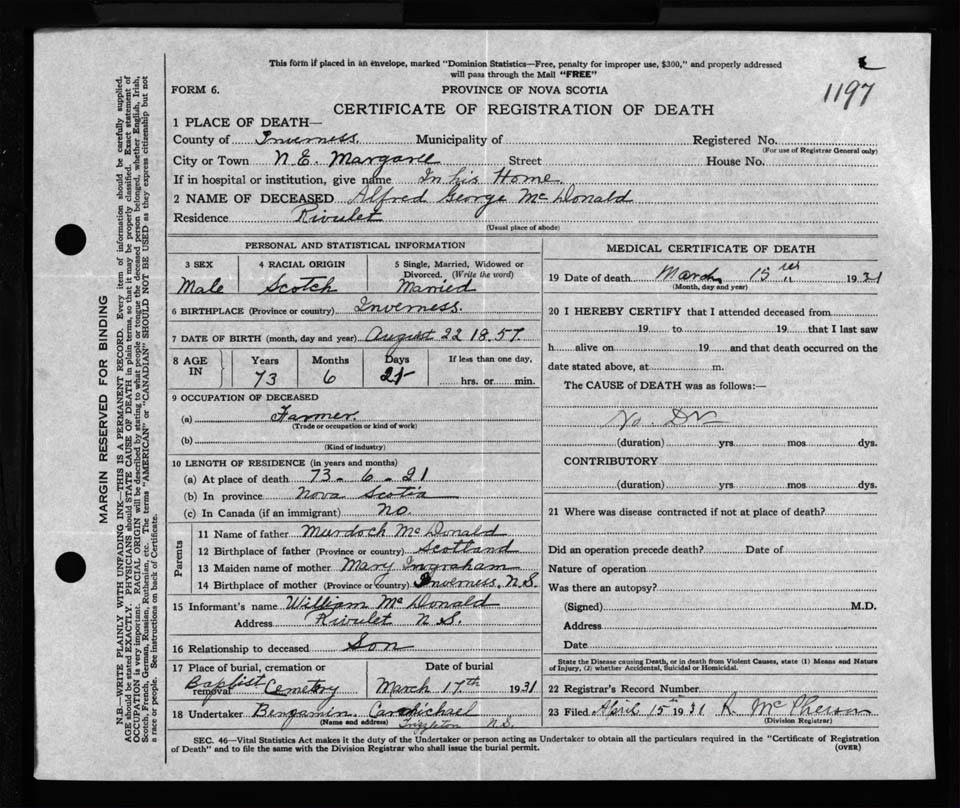 This form if placed in an envelope, marked "Dominion Statistics—Free, penalty for improper use, $300," and properly addressed
will pass through the Mail "FREE"
FORM 6. PROVINCE OF NOVA SCOTIA 1197
CERTIFICATE OF REGISTRATION OF DEATH
1 PLACE OF DEATH—
County of Inverness. Municipality of Registered No.
(For use of Registrar General only)
City or Town N.E. Margaree Street House No.
If in hospital or institution, give name In his Home
2 NAME OF DECEASED Alfred George McDonald
Residence Rivulet
(Usual place of abode)
PERSONAL AND STATISTICAL INFORMATION
3 SEX 4 RACIAL ORIGIN 5 Single, Married, Widowed or
Divorced. (Write the word)
Male Scotch Married
6 BIRTHPLACE (Province or country) Inverness.
7 DATE OF BIRTH (month, day and year) August 22 1857
8 AGE IN Years Months Days If less than one day,
73 6 21 hrs. or min.
9 OCCUPATION OF DECEASED
(a) Farmer.
(Trade or occupation or kind of work)
(b)
(Kind of industry)
10 LENGTH OF RESIDENCE (in years and months)
(a) At place of death 73-6-21
(b) In province Nova Scotia
(c) In Canada (if an immigrant) No.
Parents
11 Name of father Murdoch McDonald
12 Birthplace of father (Province or country) Scotland
13 Maiden name of mother Mary Ingraham
14 Birthplace of mother (Province or country) Inverness, N.S.
15 Informant's name William McDonald
Address Rivulet N.S.
16 Relationship to deceased Son
17 Place of burial, cremation or Date of burial
removal Baptist Cemetery March 17th 1931
18 Undertaker Benjamin Carmichael
(Name and address) N.S.
MEDICAL CERTIFICATE OF DEATH
19 Date of death March 15 1931
(Month, day and year)
20 I HEREBY CERTIFY that I attended deceased from
19 to 19 that I last saw
h alive on 19 and that death occurred on the
date stated above, at m.
The CAUSE of DEATH was as follows:—
No. Dr
(duration) yrs mos dys.
CONTRIBUTORY
(duration) yrs mos dys.
21 Where was disease contracted if not at place of death?
Did an operation precede death? Date of
Nature of operation
Was there an autopsy?
(Signed) M.D.
Address
Date
State the Disease causing Death, or in death from Violent Causes, state (1) Means and Nature
of Injury, (2) whether Accidental, Suicidal or Homicidal.
22 Registrar's Record Number
23 Filed April 15 1931 R. McPherson
(Division Registrar)
SEC. 46—Vital Statistics Act makes it the duty of the Undertaker or person acting as Undertaker to obtain all the particulars required in the "Certificate of Registration
of Death" and to file the same with the Division Registrar who shall issue the burial permit. (OVER)
MARGIN RESERVED FOR BINDING
N.B.—WRITE PLAINLY WITH UNFADING INK—THIS IS A PERMANENT RECORD. Every item of information should be carefully supplied.
AGE should be stated EXACTLY. PHYSICIANS should STATE CAUSE OF DEATH in plain terms, so that it may be properly classified. Exact statement of
OCCUPATION is very important. RACIAL ORIGIN will be described by stating to what people or tongue the deceased person belonged, whether English, Irish,
Scotch, French, German, Russian, Ruthenian, etc. The terms "AMERICAN" or "CANADIAN" SHOULD NOT BE USED as they express citizenship but not
a race or people. See instructions on back of Certificate.